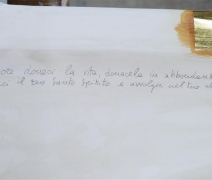 donaci la vita, donacela in abbondanza
ci il tuo Santo Spirito e avvolgi nel tuo